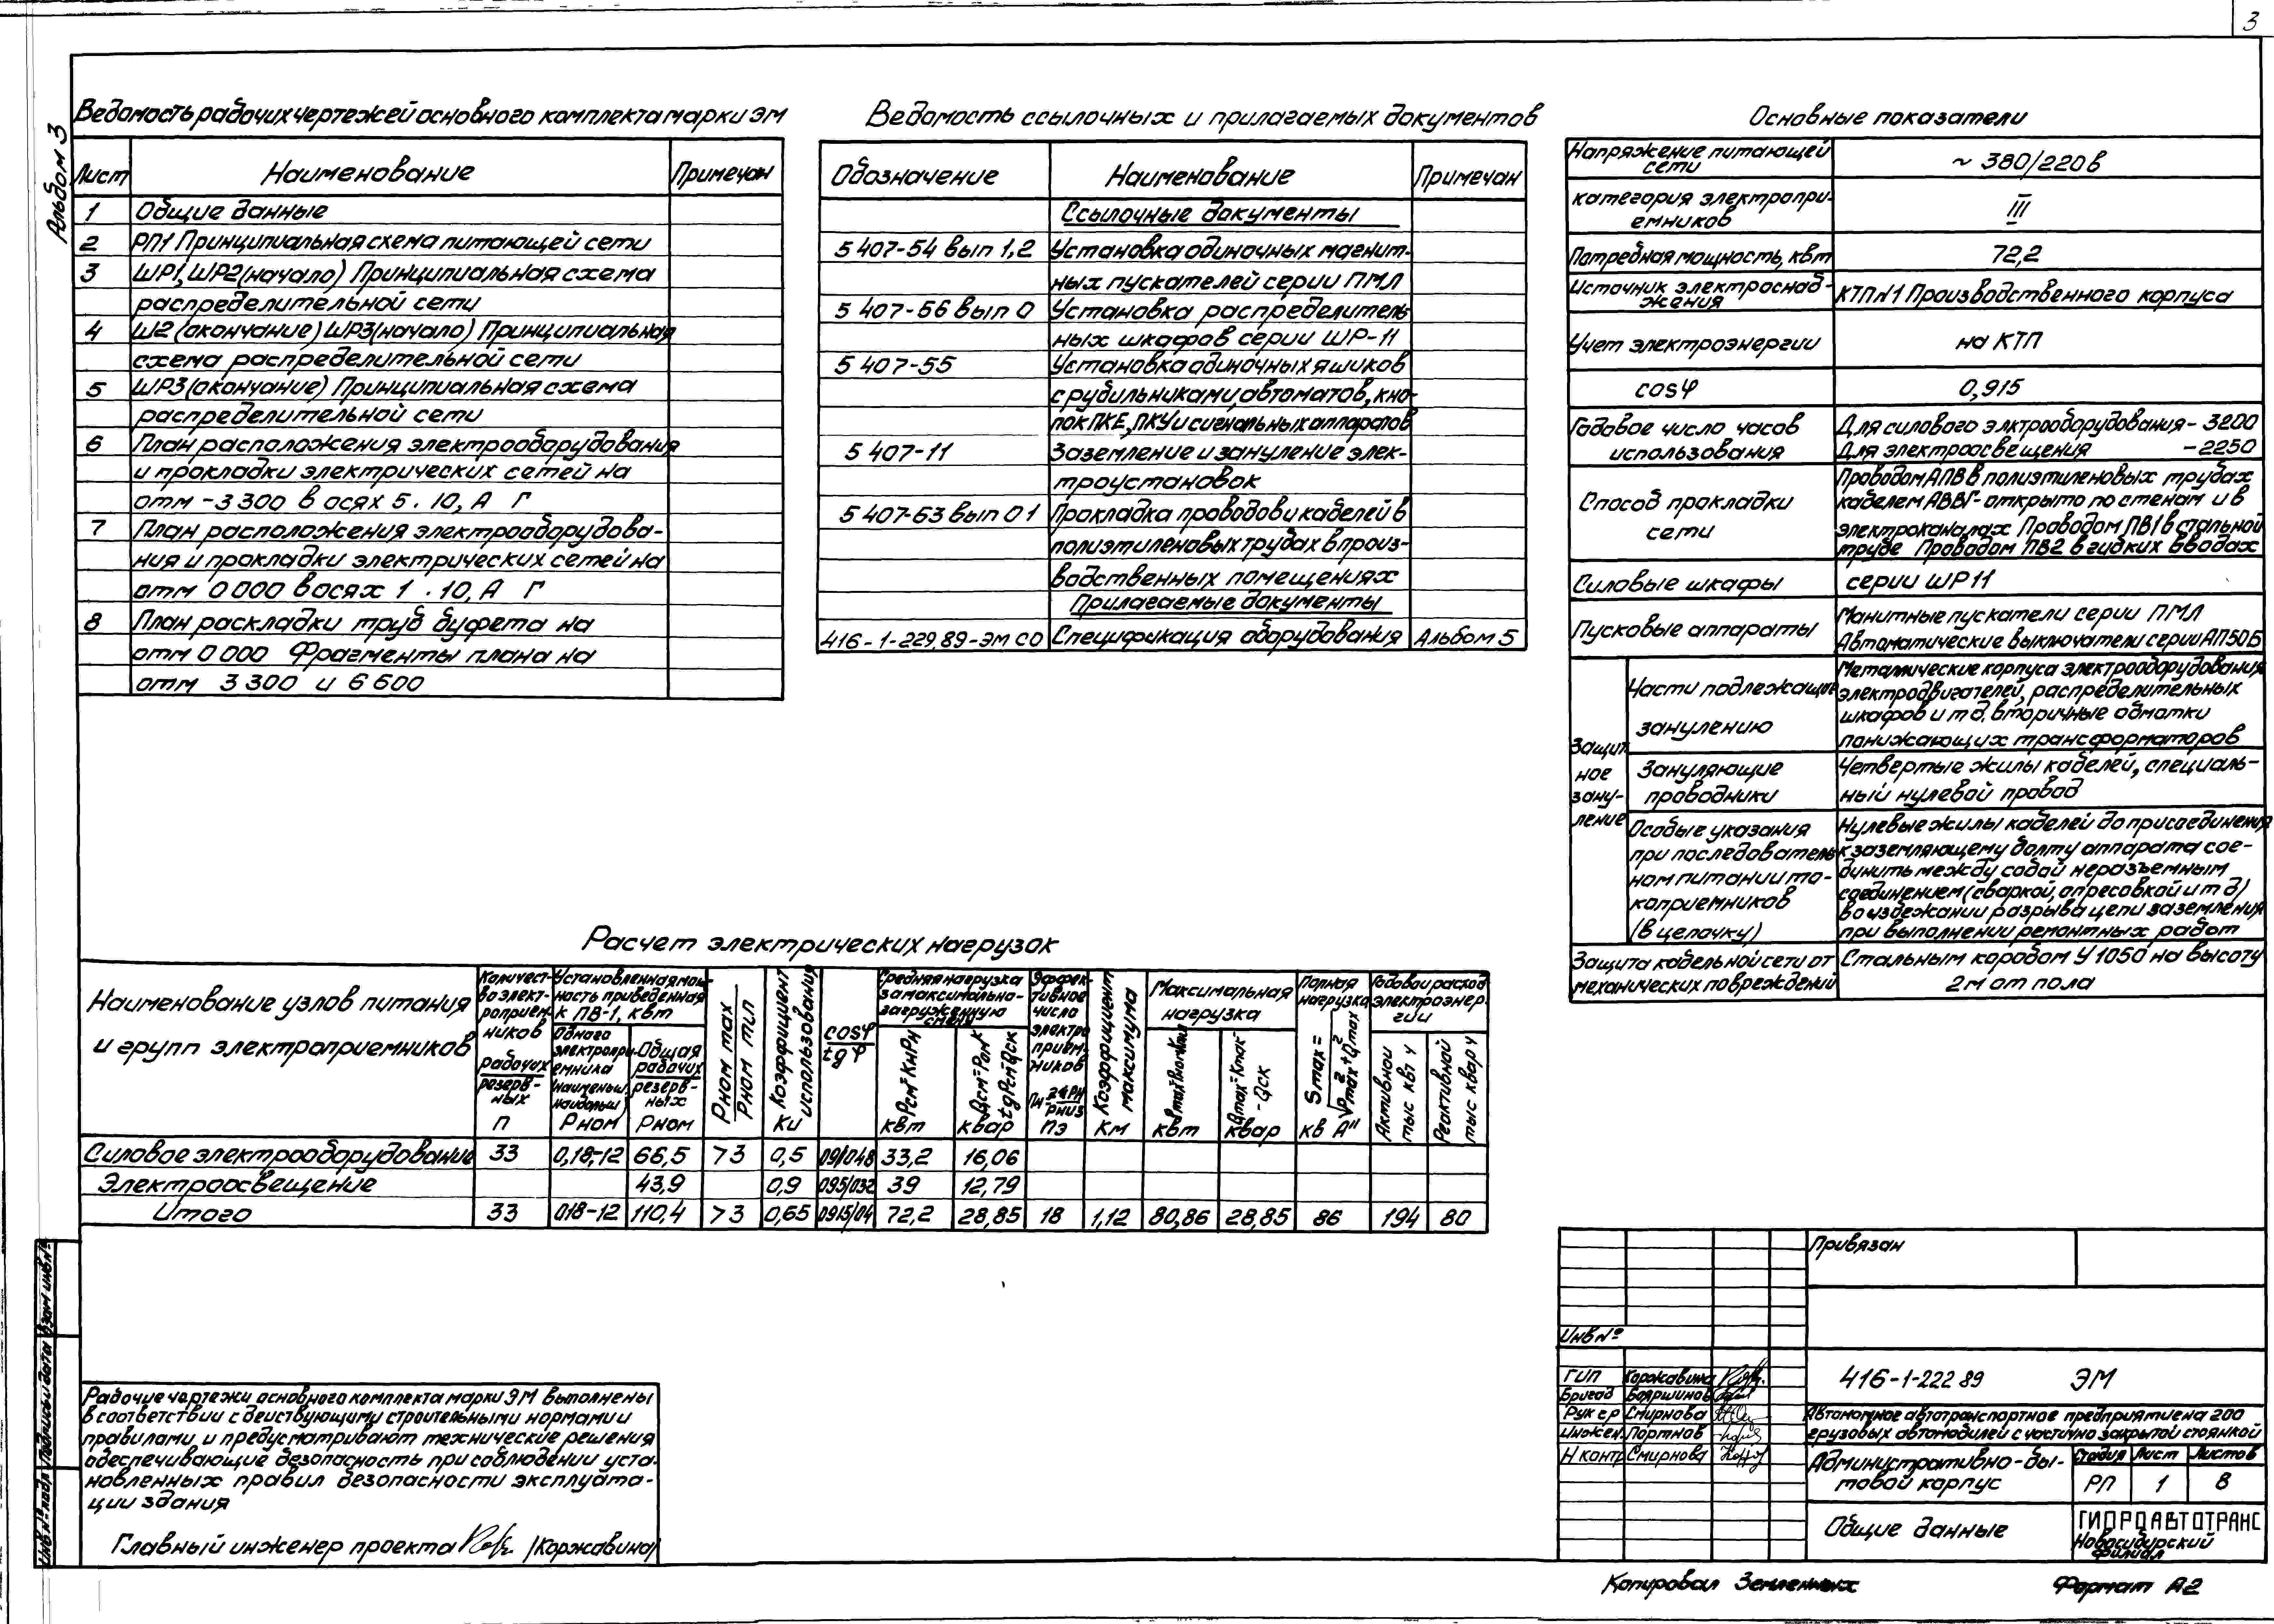 3
Альбом 3
Ведомость рабочих чертежей основного комплекта марки ЭМ
Лист
Наименование
Примечан
1
Общие данные
2
РП1 Принципиальная схема питающей сети
3
ШР1, ШР2 (начало) Принципиальная схема
распределительной сети
4
Ш2 (окончание) ШР3 (начало) Принципиальная
схема распределительной сети
5
ШР3 (окончание) Принципиальная схема
распределительной сети
6
План расположения электрооборудования
и прокладки электрических сетей на
отм -3 300 в осях 5 . 10, А Г
7
План расположения электрооборудова-
ния и прокладки электрических сетей на
отм 0 000 в осях 1 . 10, А Г
8
План раскладки труб буфета на
отм 0 000 Фрагменты плана на
отм 3 300 и 6 600
Ведомость ссылочных и прилагаемых документов
Обозначение
Наименование
Примечан
Ссылочные документы
5 407-54 вып 1,2
Установка одиночных магнит-
ных пускателей серии ПМЛ
5 407-56 вып 0
Установка распределитель
ных шкафов серии ШР-11
5 407-55
Установка одиночных ящиков
с рубильниками, автоматов, кно-
пок ПКЕ, ПКУ и сигнальных аппаратов
5 407-11
Заземление и зануление элек-
троустановок
5 407-63 вып 0 1
Прокладка проводов и кабелей в
полиэтиленовых трубах в произ-
водственных помещениях
Прилагаемые документы
416-1-229.89-ЭМ СО
Спецификация оборудования
Альбом 5
Основные показатели
Напряжение питающей
сети
~ 380/220в
категория электропри-
емников
III
Потребная мощность, квт
72,2
Источник электроснаб-
жения
КТП№1 Производственного корпуса
Учет электроэнергии
на КТП
cosφ
0,915
Годовое число часов
использования
Для силового элктрооборудования - 3200
Для электроосвещения -2250
Способ прокладки
сети
Проводом АПВ в полиэтиленовых трубах
кабелем АВВГ- открыто по стенам и в
электроканалах Проводом ПВ1 в стальной
трубе Проводом ПВ2 в гибких вводах
Силовые шкафы
серии ШР11
Пусковые аппараты
Манитные пускатели серии ПМЛ
Автоматические выключатели серии АП50Б
Защит
ное
зану-
ление
Части подлежащие
занулению
Металлические корпуса электрооборудования
электродвигателей, распределительных
шкафов и т д. вторичные обмотки
понижающих трансформаторов
Зануляющие
проводники
Четвертые жилы кабелей, специаль-
ный нулевой провод
Особые указания
при последователь
ном питании то-
коприемников
(в цепочку)
Нулевые жилы кабелей до присоединения
к заземляющему болту аппарата сое-
динить между собой неразъемным
соединением (сваркой, опресовкой и т д)
во избежании разрыва цепи заземления
при выполнении ремонтных работ
Защита кабельной сети от
механических повреждений
Стальным коробом У 1050 на высоту
2м от пола
Расчет электрических нагрузок
Наименование узлов питания
и групп электроприемников
Количест-
во элект-
роприем-
ников
рабочих
резерв-
ных
п
Установленная мощ-
ность приведенная
к ПВ-1, квт
Одного
электропри-
емника
наименьш
наибольш
Рном
Общая
рабочих
резерв-
ных
Рном
Рном max
Рном min
Коэффициент
использования
Ки
cosφ
tgφ
Средняя нагрузка
за максимально-
загруженную
смену
Рсм=КиРн
квт
квар
Эффек-
тивное
число
электро
прием-
ников
пэ
Коэффициент
максимума
Км
Максимальная
нагрузка
квт
квар
Полная
нагрузка
Smax=
√P²max+Q²max
кв А"
Годовой расход
электроэнер-
гии
Активной
тыс квт ч
Реактивной
тыс квар ч
Силовое электрооборудование 33 0,18-12 66,5 >3 0,5 09/048 33,2 16,06
Электроосвещение 43,9 0,9 095/032 39 12,79
Итого 33 018-12 110,4 >3 0,65 0915/04 72,2 28,85 18 1,12 80,86 28,85 86 194 80
Взам инв№
Подпись и дата
Инв№подл
Рабочие чертежи основного комплекта марки ЭМ выполнены
в соответствии с действующими строительными нормами и
правилами и предусматривают технические решения
обеспечивающие безопасность при соблюдении уста-
новленных правил безопасности эксплуата-
ции здания
Главный инженер проекта /Коржавина/
Привязан
Инв№
ГИП Коржавина
Бригад Бояршинов
Рук гр Смирнова
Инжен. Портнов
Н контр Смирнова
416-1-222 89 ЭМ
Автономное автотранспортное предприятие на 200
грузовых автомобилей с частично закрытой стоянкой
Административно-бы-
товой корпус
Стадия Лист Листов
РП 1 8
Общие данные
ГИПРОАВТОТРАНС
Новосибирский
филиал
Копировал
Формат А2